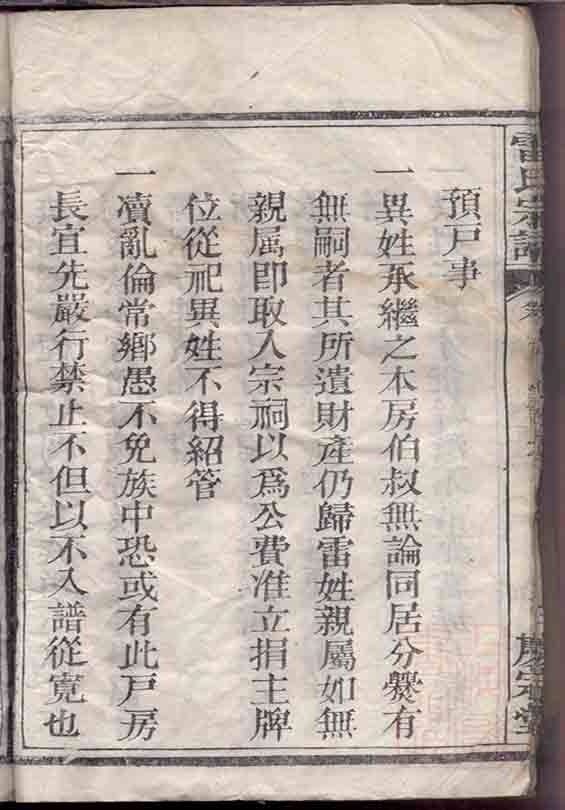 預戸事
一異姓承繼之本房伯叔無論同居分爨有
無嗣者其所遺財產仍歸雷姓親屬如無
親属即取入宗祠以為公費准立捐主牌
位從祀異姓不得紹管
一瀆亂倫常鄉愚不免族中恐或有此戸房
長宜先嚴行禁止不但以不入譜從寬也
雷氏宗譜